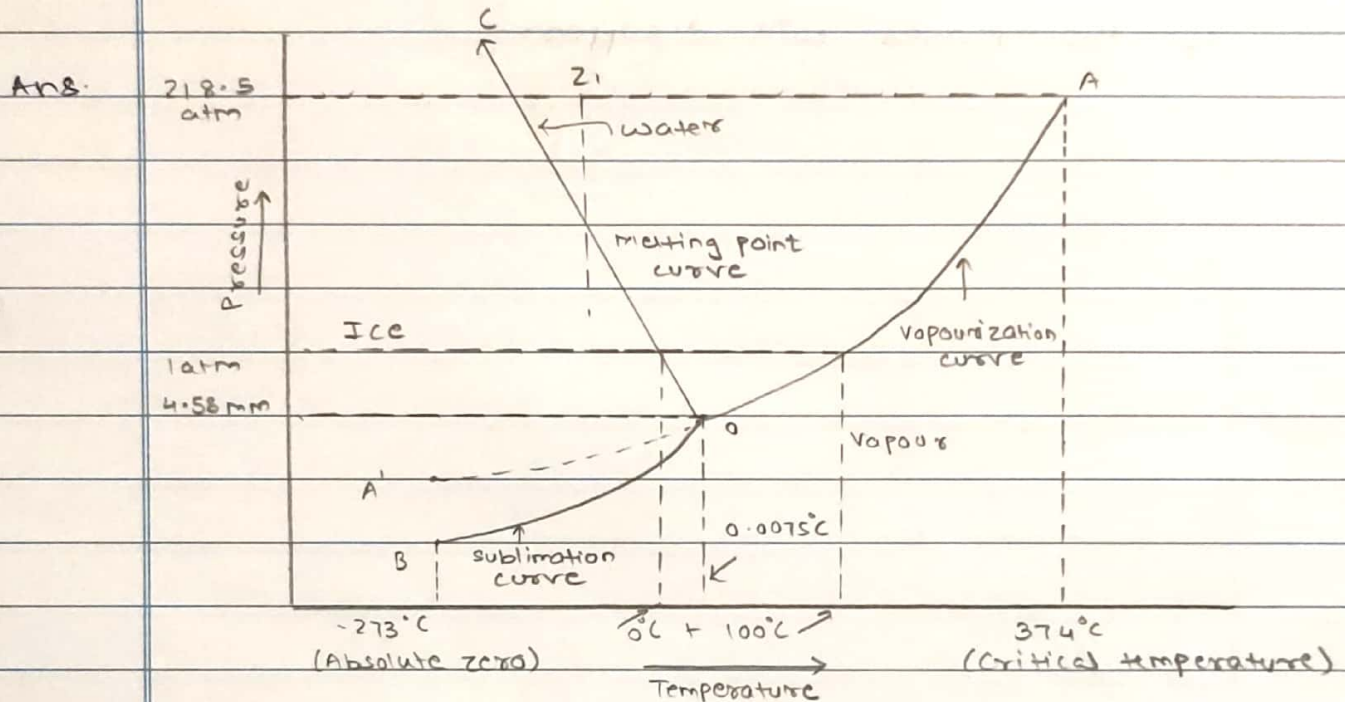 C
Ans.
218.5
atm
Z1
A
water
Pressure
melting point
curve
Ice
Vapourization
curve
1 atm
4.58 mm
O
Vapour
A'
0.0075°C
B
sublimation
curve
-273°C
0°C + 100°C
374°C
(Absolute zero)
(Critical temperature)
Temperature